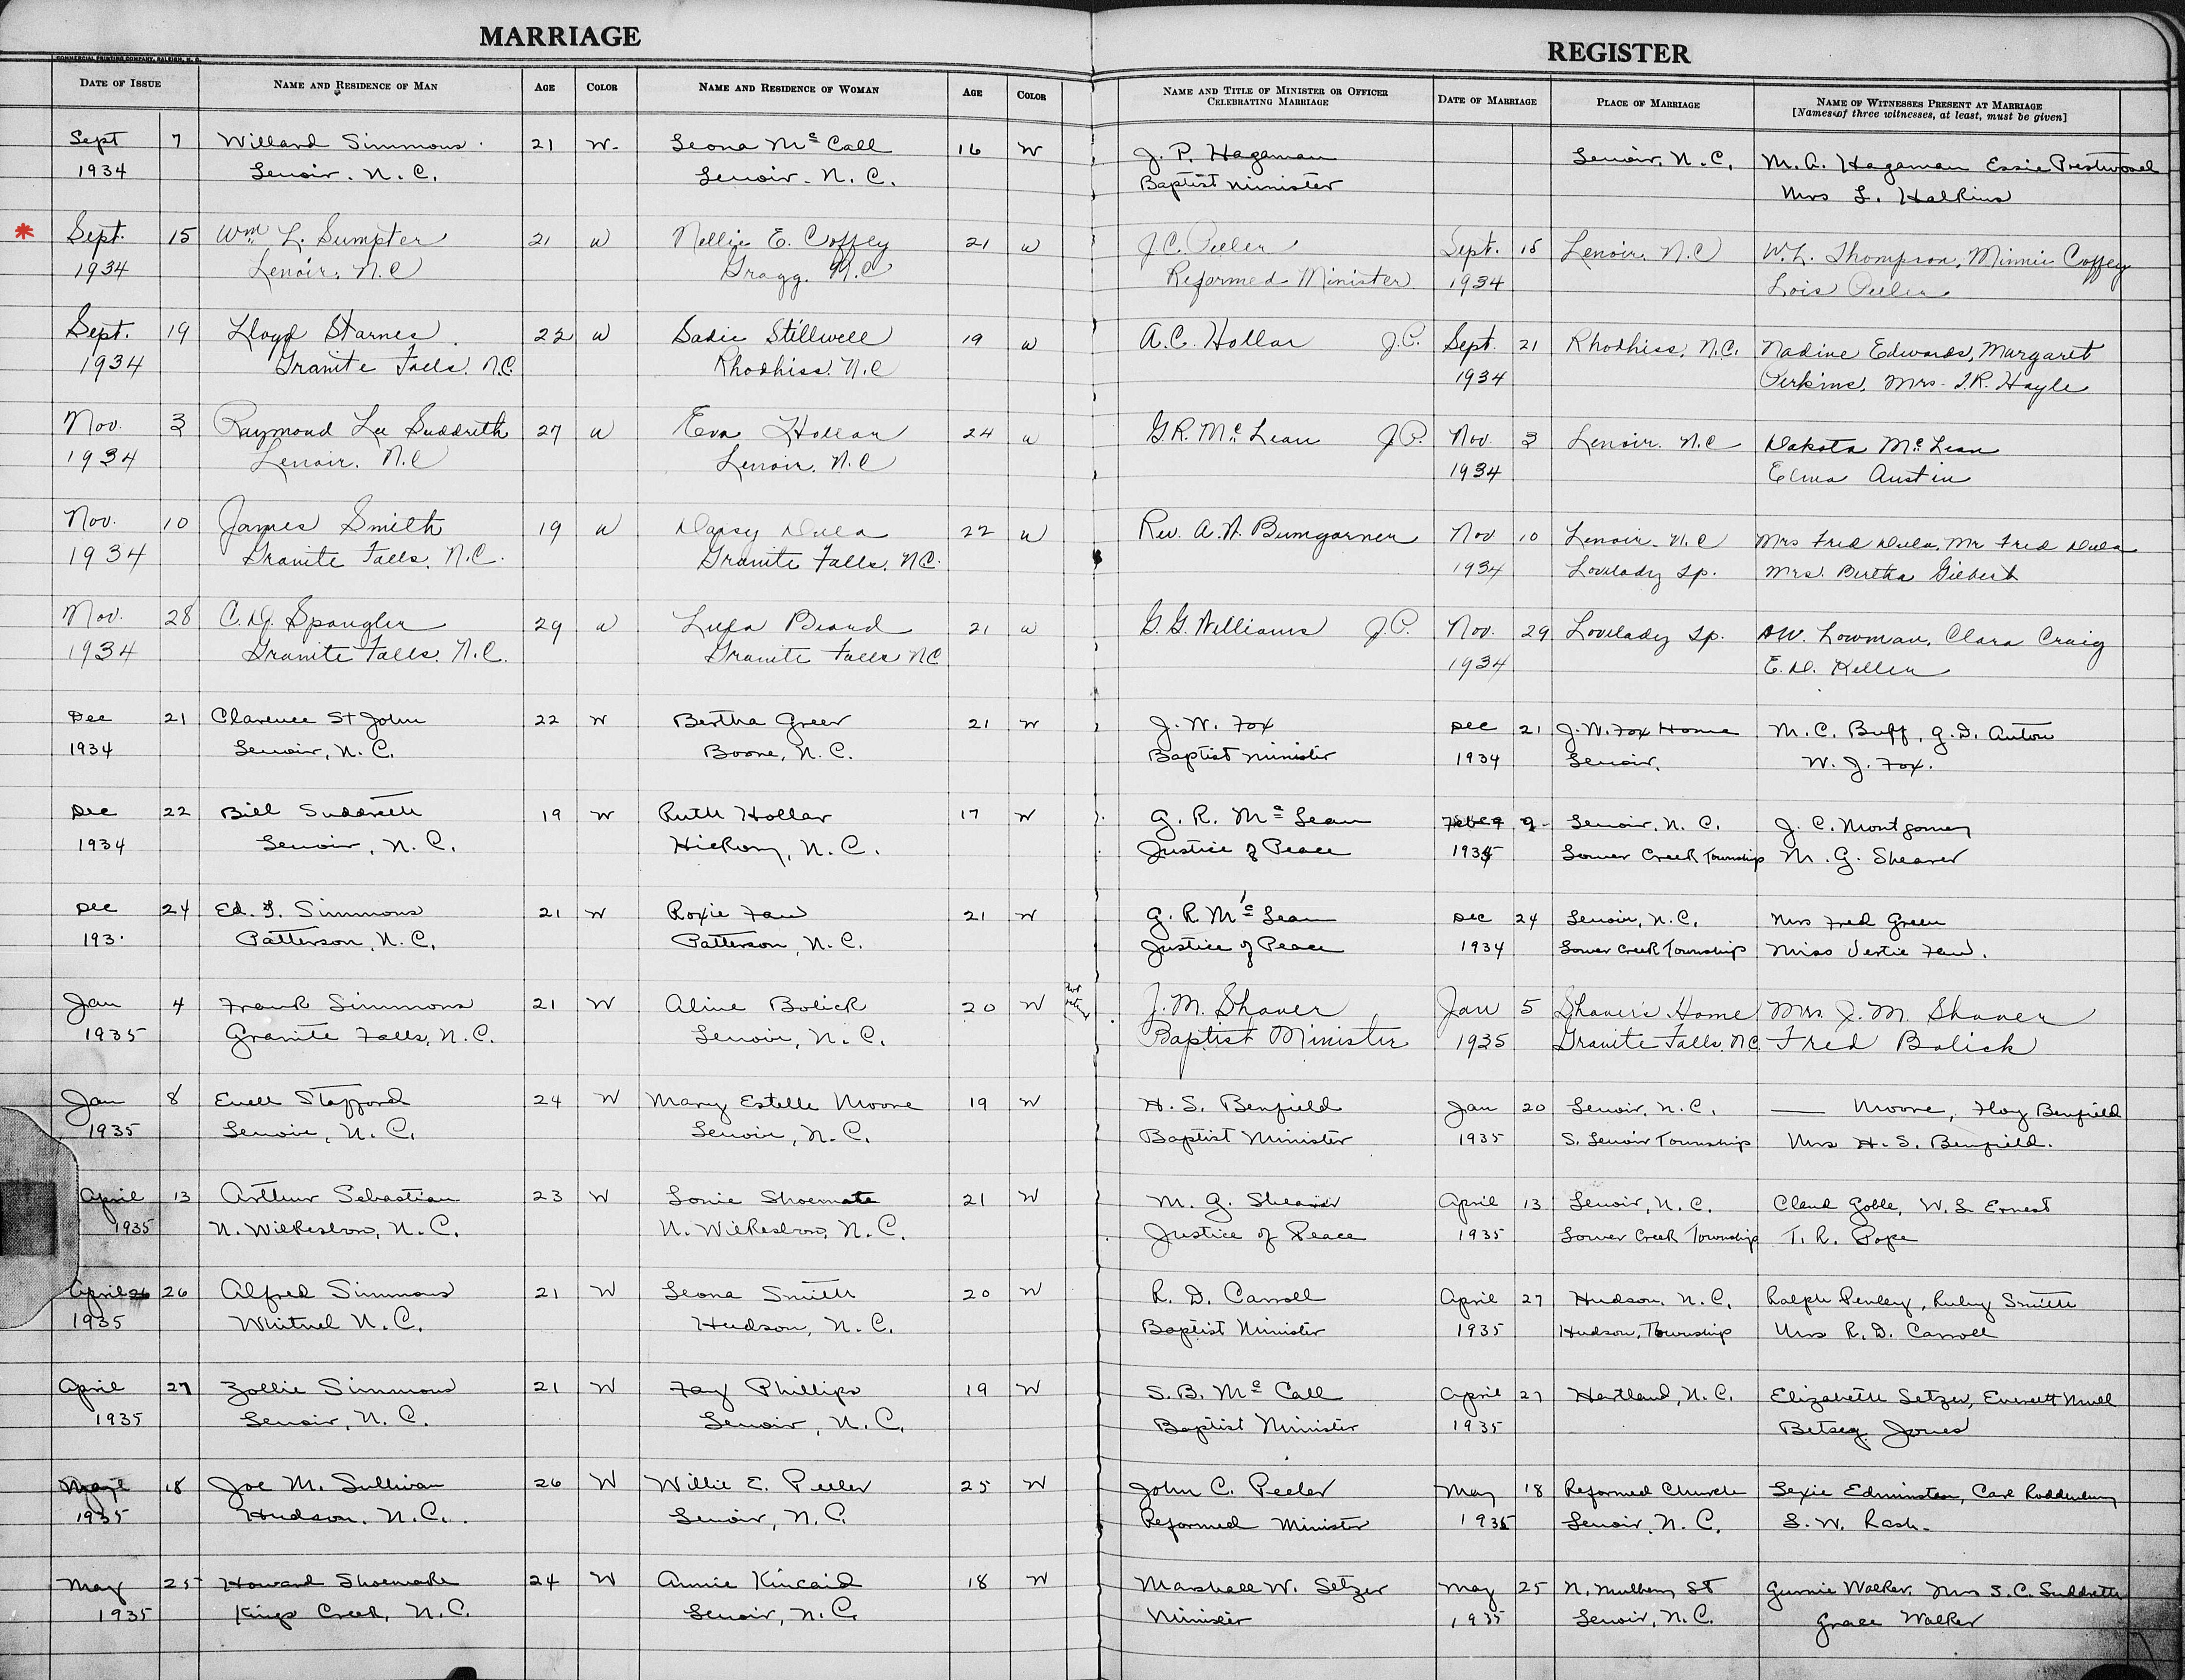 MARRIAGE
REGISTER
COMMERCIAL PRINTING COMPANY, RALEIGH, N. C.
DATE OF ISSUE NAME AND RESIDENCE OF MAN AGE COLOR NAME AND RESIDENCE OF WOMAN AGE COLOR NAME AND TITLE OF MINISTER OR OFFICER CELEBRATING MARRIAGE DATE OF MARRIAGE PLACE OF MARRIAGE NAME OF WITNESSES PRESENT AT MARRIAGE
[Names of three witnesses, at least, must be given]
Sept 7 Willard Simmons 21 W Leona McCall 16 W J. P. Hagaman Lenoir, N.C. M. A. Hagaman Essie Prestwood
1934 Lenoir. N.C. Lenoir. N.C. Baptist Minister Mrs L. Halkins
* Sept. 15 Wm L. Sumpter 21 W Nellie E. Coffey 21 W J.C. Peeler Sept. 15 Lenoir. N.C W.L. Thompson, Minnie Coffey
1934 Lenoir. N.C Gragg. N.C Reformed Minister 1934 Lois Peeler
Sept. 19 Lloyd Starnes 22 W Sadie Stillwell 19 W A.C. Hollar J.P. Sept. 21 Rhodhiss, N.C. Nadine Edwards, Margaret
1934 Granite Falls. N.C. Rhodhiss. N.C 1934 Perkins, Mrs. T.R. Hayle
Nov. 3 Raymond Lee Suddreth 27 W Eva Hollar 24 W G.R. McLean J.P. Nov. 3 Lenoir. N.C Dakota McLean
1934 Lenoir. N.C Lenoir. N.C 1934 Elma Austin
Nov. 10 James Smith 19 W Daisy Dula 22 W Rev. A.W. Bumgarner Nov 10 Lenoir. N.C Mrs Fred Dula, Mr Fred Dula
1934 Granite Falls. N.C. Granite Falls. N.C. 1934 Lovelady Tp. Mrs. Bertha Gilbert
Nov. 28 C.D. Spangler 29 W Lula Beard 21 W G.G. Williams J.P. Nov. 29 Lovelady Tp. A.W. Lowman, Clara Craig
1934 Granite Falls. N.C. Granite Falls N.C 1934 E.D. Keller
Dec 21 Clarence St John 22 W Bertha Greer 21 W J. W. Fox Dec 21 J.W. Fox Home M. C. Buff, G.D. Anton
1934 Lenoir, N.C. Boone, N.C. Baptist Minister 1934 Lenoir. W. J. Fox.
Dec 22 Bill Suddreth 19 W Ruth Hollar 17 W G. R. McLean 9 Lenoir, N.C. J. C. Montgomery
1934 Lenoir, N.C. Hickory, N.C. Justice of Peace 1935 Lower Creek Township M. G. Shearer
Dec 24 Ed. F. Simmons 21 W Roxie Faw 21 W G. R. McLean Dec 24 Lenoir, N.C. Mrs Fred Green
193 Patterson, N.C. Patterson, N.C. Justice of Peace 1934 Lower Creek Township Miss Vertie Faw.
Jan 4 Frank Simmons 21 W Aline Bolick 20 W J. M. Shaver Jan 5 Shaver's Home Mrs. J. M. Shaver
1935 Granite Falls, N.C. Lenoir, N.C. Baptist Minister 1935 Granite Falls, N.C. Fred Bolick
Jan 8 Euell Stafford 24 W Mary Estelle Moore 19 W H. S. Benfield Jan 20 Lenoir, N.C. — Moore, Floy Benfield
1935 Lenoir, N.C. Lenoir, N.C. Baptist Minister 1935 S. Lenoir Township Mrs H. S. Benfield.
April 13 Arthur Sebastian 23 W Lonie Shoemate 21 W M. G. Shearer April 13 Lenoir, N.C. Claud Goble, W. L. Ernest
1935 N. Wilkesboro, N.C. N. Wilkesboro, N.C. Justice of Peace 1935 Lower Creek Township T. R. Pope
April 26 26 Alfred Simmons 21 W Leona Smith 20 W R. D. Carroll April 27 Hudson, N.C. Ralph Penley, Ruby Smith
1935 Whitnel N.C. Hudson, N.C. Baptist Minister 1935 Hudson, Township Mrs R. D. Carroll
April 27 Zollie Simmons 21 W Fay Phillips 19 W S. B. McCall April 27 Hartland, N.C. Elizabeth Setzer, Everett Mull
1935 Lenoir, N.C. Lenoir, N.C. Baptist Minister 1935 Betsey Jones
May 18 Joe M. Sullivan 26 W Willie E. Peeler 25 W John C. Peeler May 18 Reformed Church Lexie Edminsten, Carl
1935 Hudson. N.C. Lenoir, N.C. Reformed Minister 1935 Lenoir, N.C. L. W. Rash.
May 25 Howard Shoemake 24 W Annie Kincaid 18 W Marshall W. Setzer May 25 N. Mulberry St Gurnie Walker, Mrs S.C. Suddreth
1935 Kings Creek, N.C. Lenoir, N.C. Minister 1935 Lenoir, N.C. Grace Walker